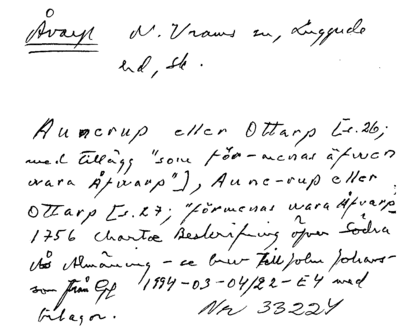 Åvarp N. Vrams sn, Luggude
hd, Sk.
Aunerup eller Ottarp [s.26;
med tillägg "som för-menas äfwen
wara Åfwarp"], Aune-rup eller
Ottarp [s.27; "förmenas wara Åfvarp
1756 Chartæ Beskrifning öfver Södra
Ås Almäning - se brev till John Johans-
son från Gg 1994-03-04/22-E4 med
bilagor. Nr 33224